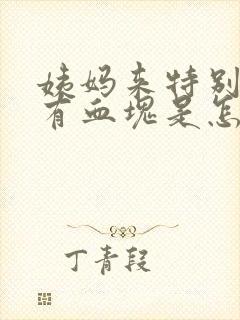 姨妈来特别
有血塊是怎
丁青段